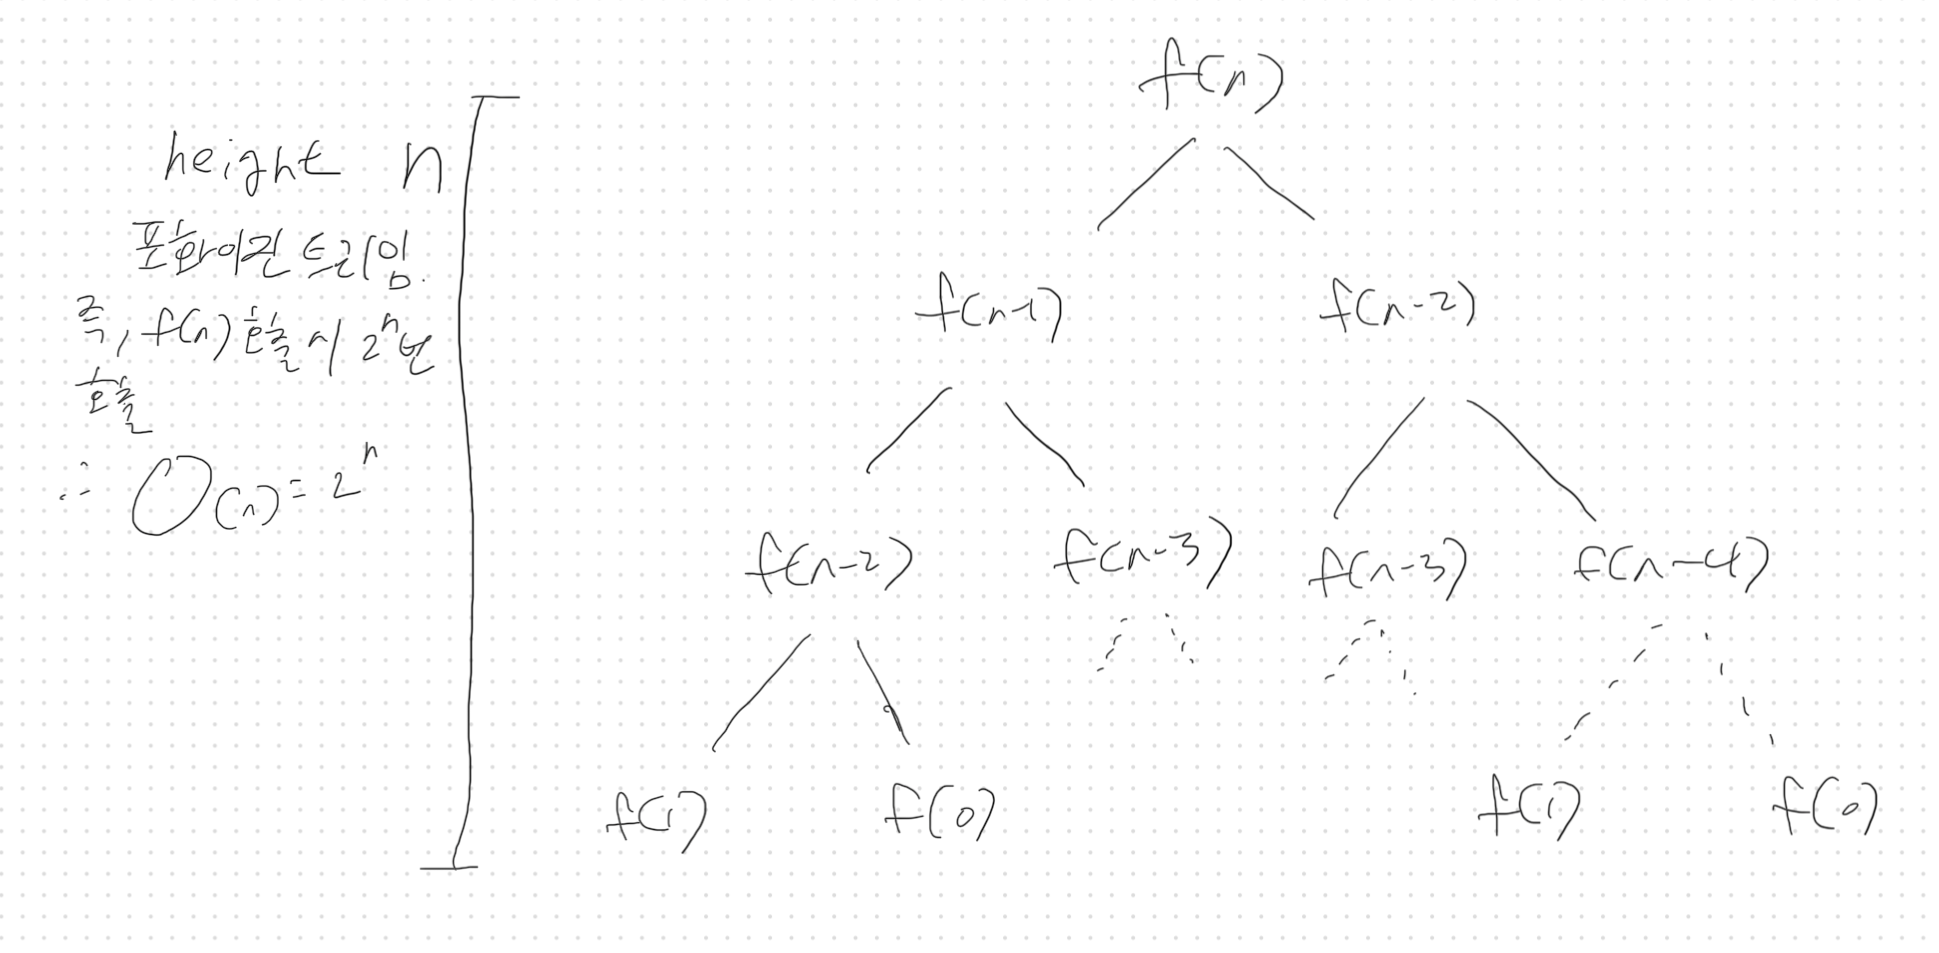 f(n)
height n
포화이진 트리임.
즉, f(n) 호출 시 2ⁿ번
호출
∴ O(n) = 2ⁿ
f(n-1) f(n-2)
f(n-2) f(n-3) f(n-3) f(n-4)
f(1) f(0) f(1) f(0)